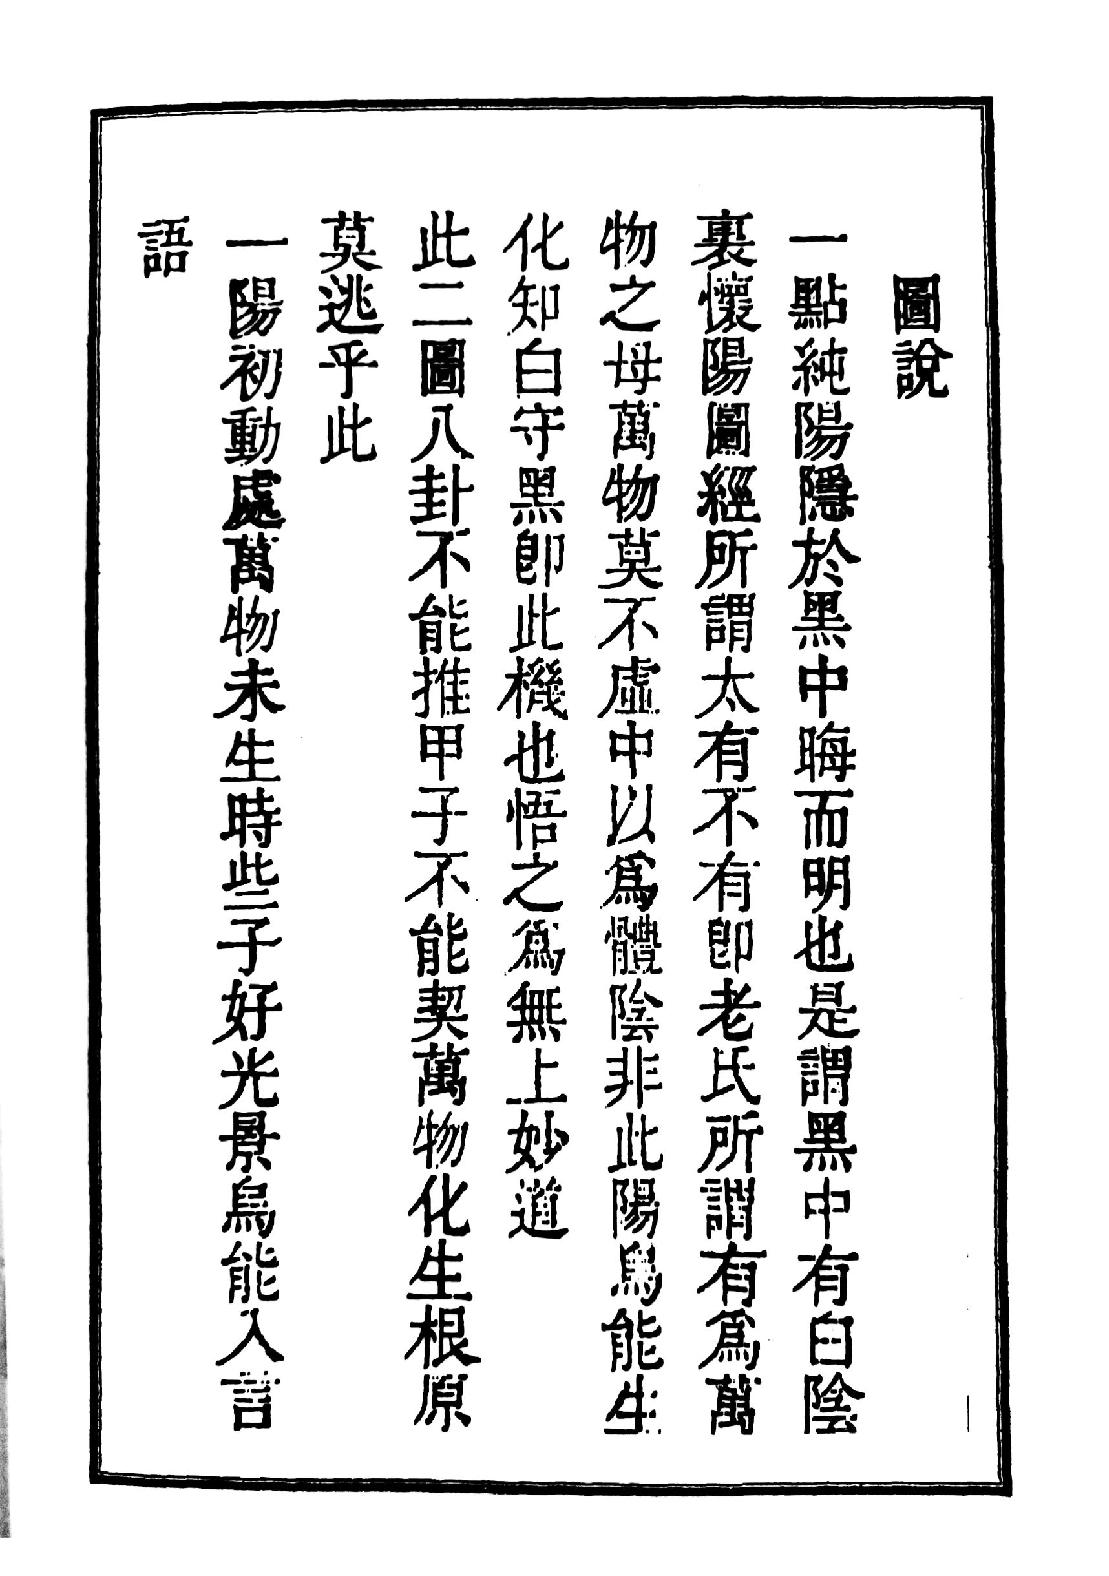 圖說
一點純陽隱於黑中晦而明也是謂黑中有白陰
裏懷陽圖經所謂太有不有卽老氏所謂有爲萬
物之母萬物莫不虛中以爲體陰非此陽烏能生
化知白守黑卽此機也悟之爲無上妙道
此二圖八卦不能推甲子不能契萬物化生根原
莫逃乎此
一陽初動處萬物未生時些子好光景烏能入言
語